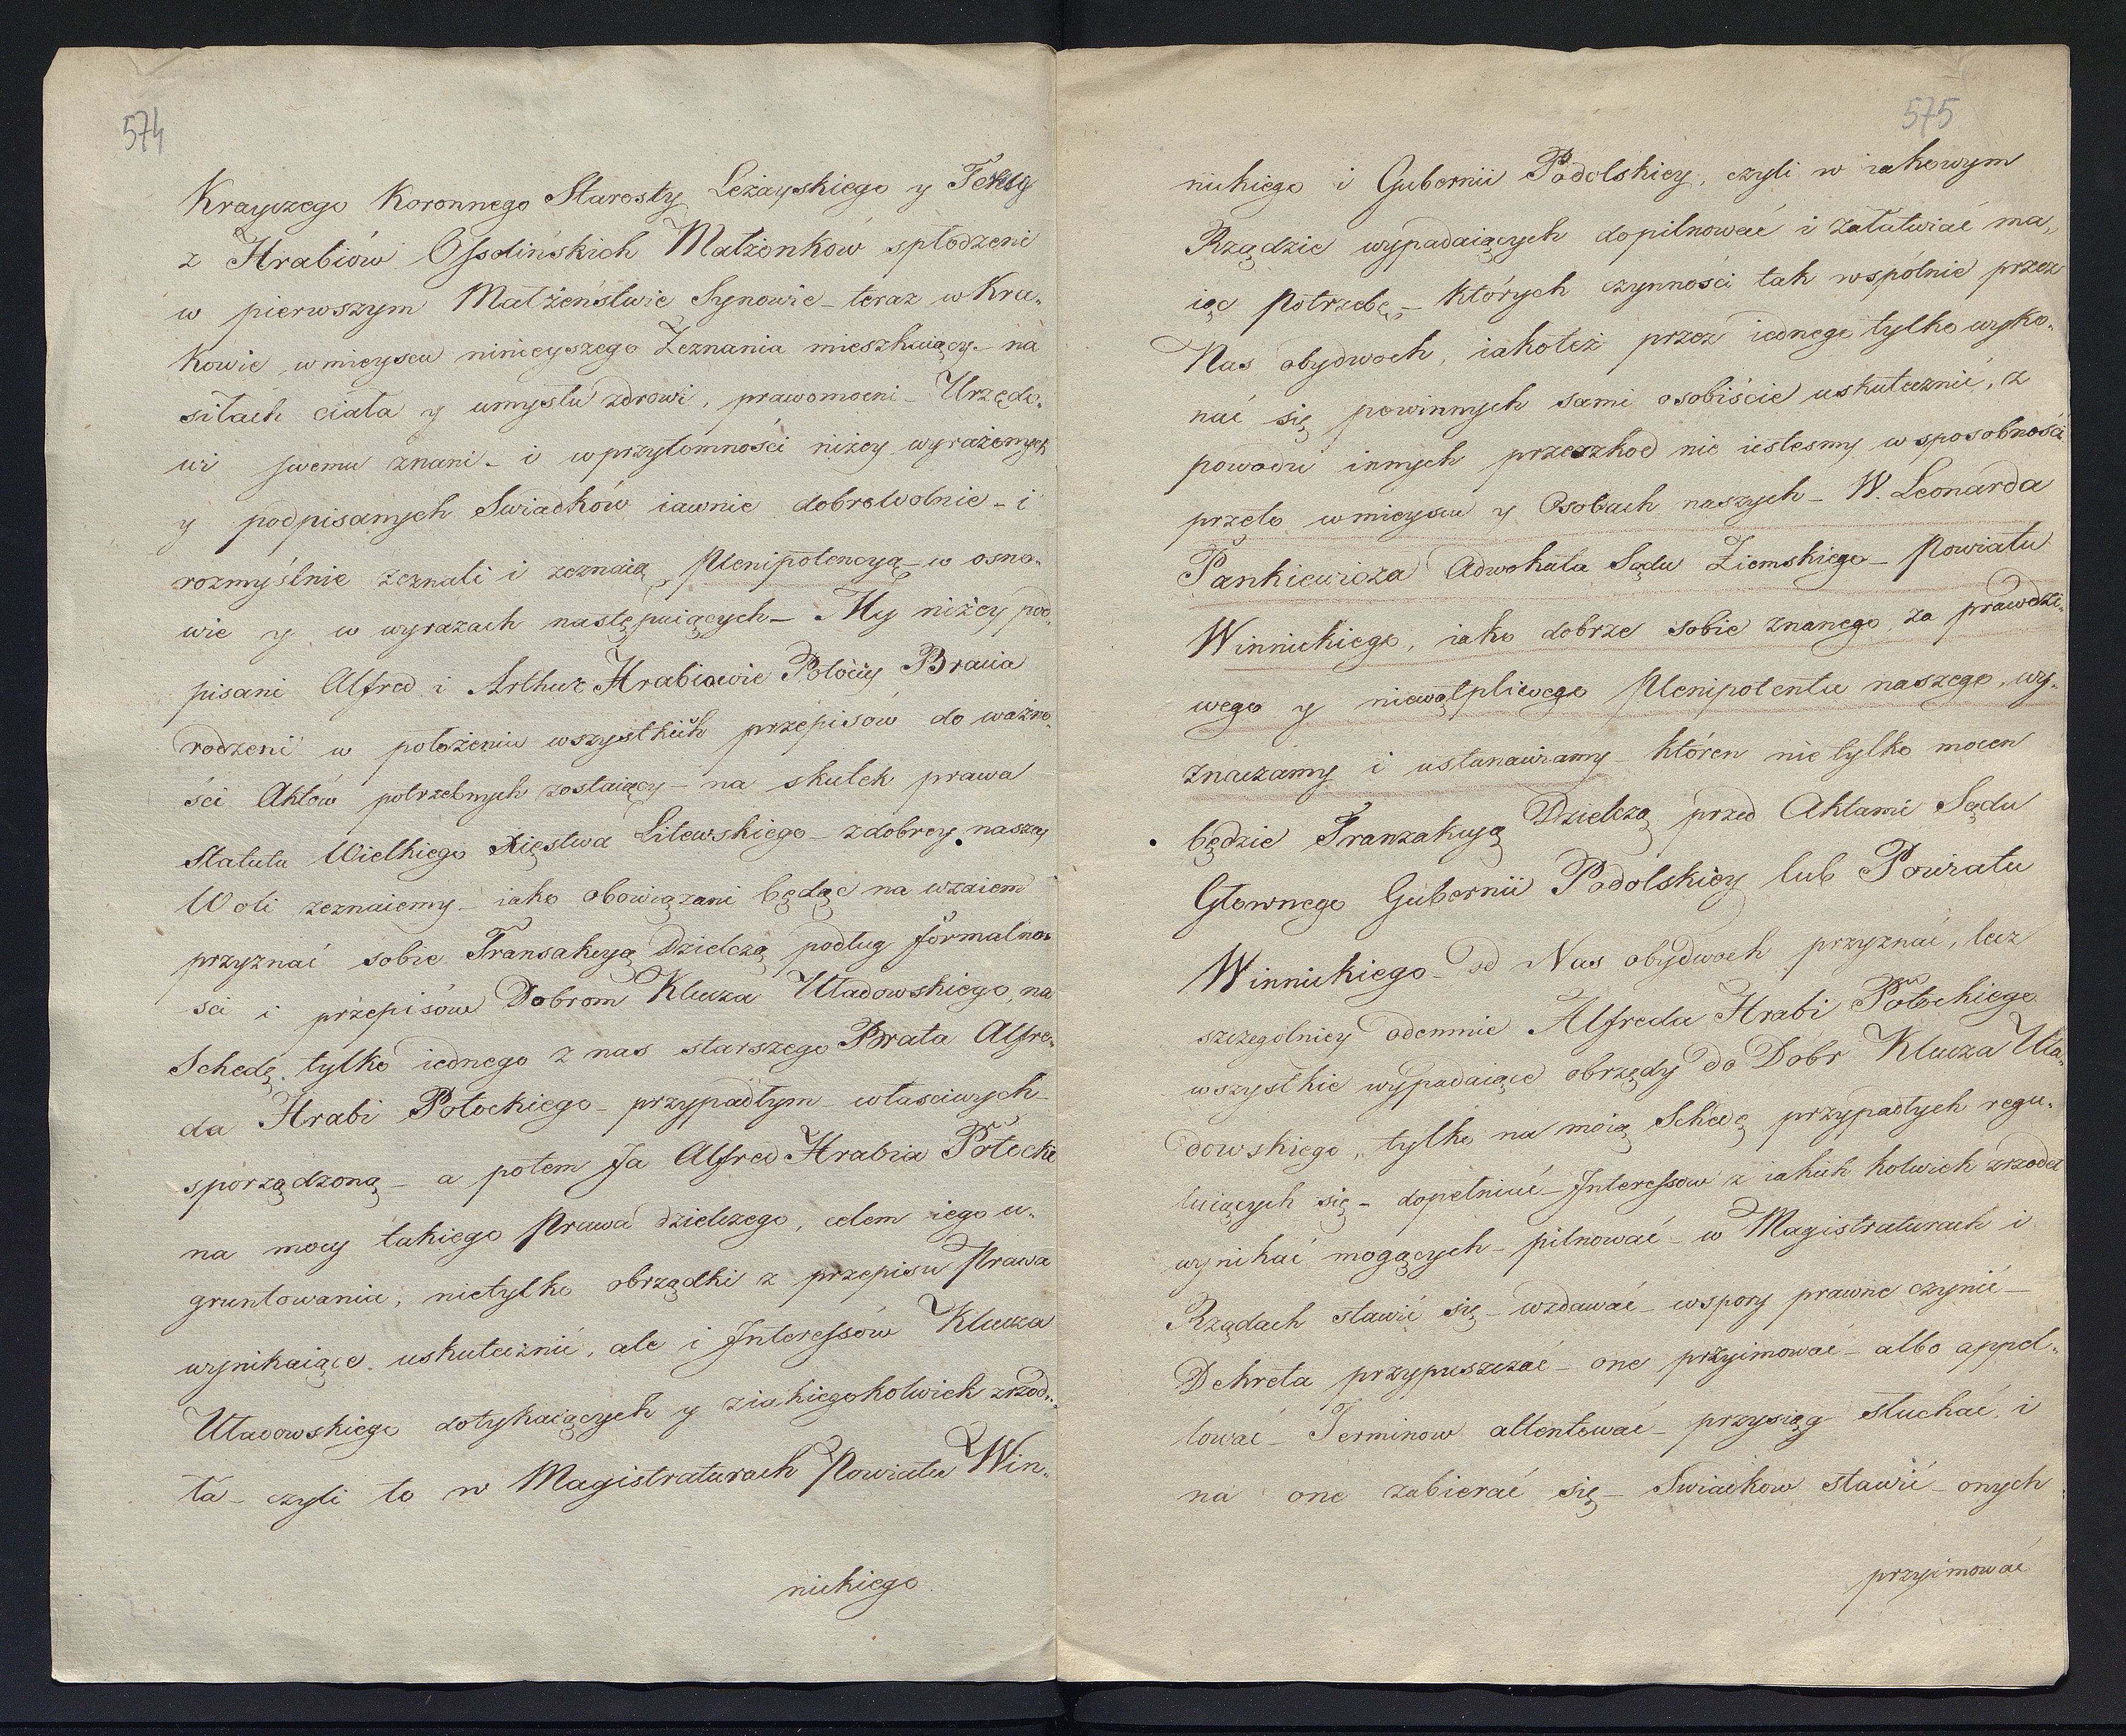 574
Krayczego Koronnego Starosty Leżayskiego y Tekly
z Hrabiów Ossolińskich Małżonków spłodzeni
w pierwszym Małżeństwie Synowie – teraz w Kra„
kowie w mieyscu ninieyszego Zeznania mieszkaiący – na
siłach ciała y umysłu zdrowi, prawomocni – Urzędo„
wi swemu znani – i w przytomności niżey wyrażonych
y podpisanych Swiadków iawnie dobrowolnie – i
rozmyślnie zeznali i zeznaią Plenipotencyą – w osno„
wie y w wyrazach następuiących – My niżey pod„
pisani Alfred i Arthur Hrabiowie Potoccy Bracia
rodzeni w położeniu wszystkich przepisów do ważno„
ści Aktów potrzebnych zostaiący – na skutek prawa
Statutu Wielkiego Xięstwa Litewskiego – z dobrey naszey
Woli zeznaiemy – iako obowiązani będąc na wzaiem
przyznać sobie Transakcyą Dzielczą podług formalno„
ści i przepisów Dobrom Klucza Uładowskiego, na
Schedę tylko iednego z nas starszego Brata Alfre„
da Hrabi Potockiego – przypadłym – właściwych
sporządzoną – a potem Ja Alfred Hrabia Potocki
na mocy takiego Prawa dzielczego, celem iego u„
gruntowania, nietylko obrządki z przepisu Prawa
wynikaiące uskutecznić, ale i Interessów Klucza
Uładowskiego dotykaiących y z iakiegokolwiek zrzod„
ła – czyli to w Magistraturach Powiatu Win„
nickiego
575
nickiego i Gubernii Podolskiey, czyli w iakowym
Rządzie wypadaiących dopilnować i załatwiać ma„
iąc potrzebę, – których czynności tak wspólnie przez
Nas obydwoch, iakoteż przez iednego tylko wyko„
nać się powinnych sami osobiście uskutecznić, z
powodu innych przeszkod nie iestesmy w sposobności
przeto w mieyscu y Osobach naszych – W. Leonarda
Pankiewicza Adwokata Sądu Ziemskiego – Powiatu
Winnickiego, iako dobrze sobie znanego za prawdzi„
wego y niewątpliwego Plenipotenta naszego, wy„
znaczamy i ustanawiamy – któren nie tylko mocen
będzie Tranzakcyą Dzielczą przed Aktami Sądu
Głownego Gubernii Podolskiey lub Powiatu
Winnickiego – od Nas obydwoch przyznać, lecz
szczególniey odemnie Alfreda Hrabi Potockiego
wszystkie wypadaiące obrzędy do Dóbr Klucza Uła„
dowskiego, tylko na moią Schedę przypadłych regu„
luiących się – dopełniać – Interessow z iakich kolwiek zrzodeł
wynikać mogących – pilnować – w Magistraturach i
Rządach stawić się – wzdawać – wspory prawne czynić –
Dekreta przypuszczać – one przyimować – albo appel„
lować – Terminow attentować – przysiąg słuchać, i
na one zabierać się – Swiadkow stawić – onych
przyimować